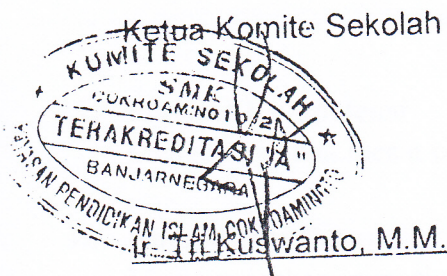 Ketua Komite Sekolah
★ KOMITE SEKOLAH ★
SMK
COKROAMINOTO 2
TERAKREDITASI "A"
BANJARNEGARA
YAYASAN PENDIDIKAN ISLAM COKROAMINOTO
Ir. Tri Kuswanto, M.M.